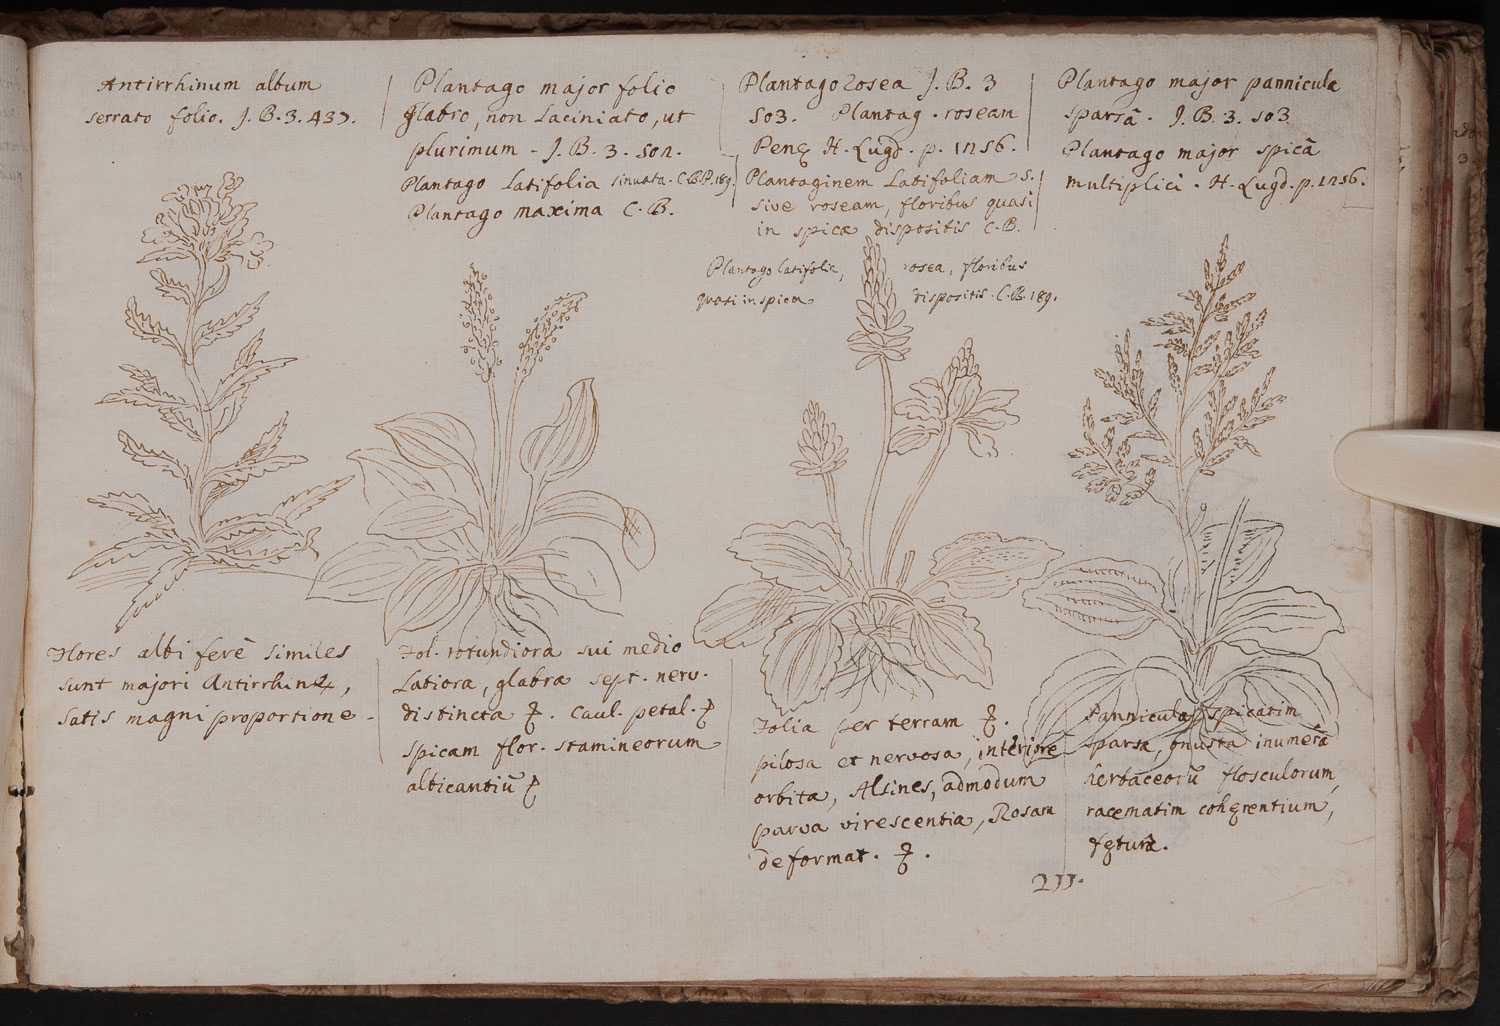 Antirrhinum album
serrato folio. J.B.3.437.
Plantago major folio
glabro, non laciniato, ut
plurimum - J.B. 3. 502.
Plantago Latifolia sinuata. C.B.P.189.
Plantago maxima C.B.
Plantago rosea J.B. 3
503. Plantag. roseam
Penę H. Lugd. p. 1256.
Plantaginem Latifoliam s.
sive roseam, floribus quasi
in spicæ dispositis C.B.
Plantago latifolia, rosea, floribus
quasi in spica dispositis. C.B. 189.
Plantago major panniculâ
sparsâ. J.B. 3. 503
Plantago major spicâ
multiplici. H. Lugd. p. 1256.
Flores albi ferè similes
sunt majori Antirrhin,
satis magni proportione.
Fol. rotundiora sui medio
Latiora, glabra sept. nerv.
distincta. Caul. petal.
spicam flor. stamineorum
albicantiũ
Folia per terram
pilosa et nervosa, interiore
orbita, Alsines, admodum
parva virescentia, Rosam
deformat.
Pannicula spicatim
sparsa, onusta inumerâ
herbaceorũ flosculorum
racematim cohęrentium,
fęturâ.